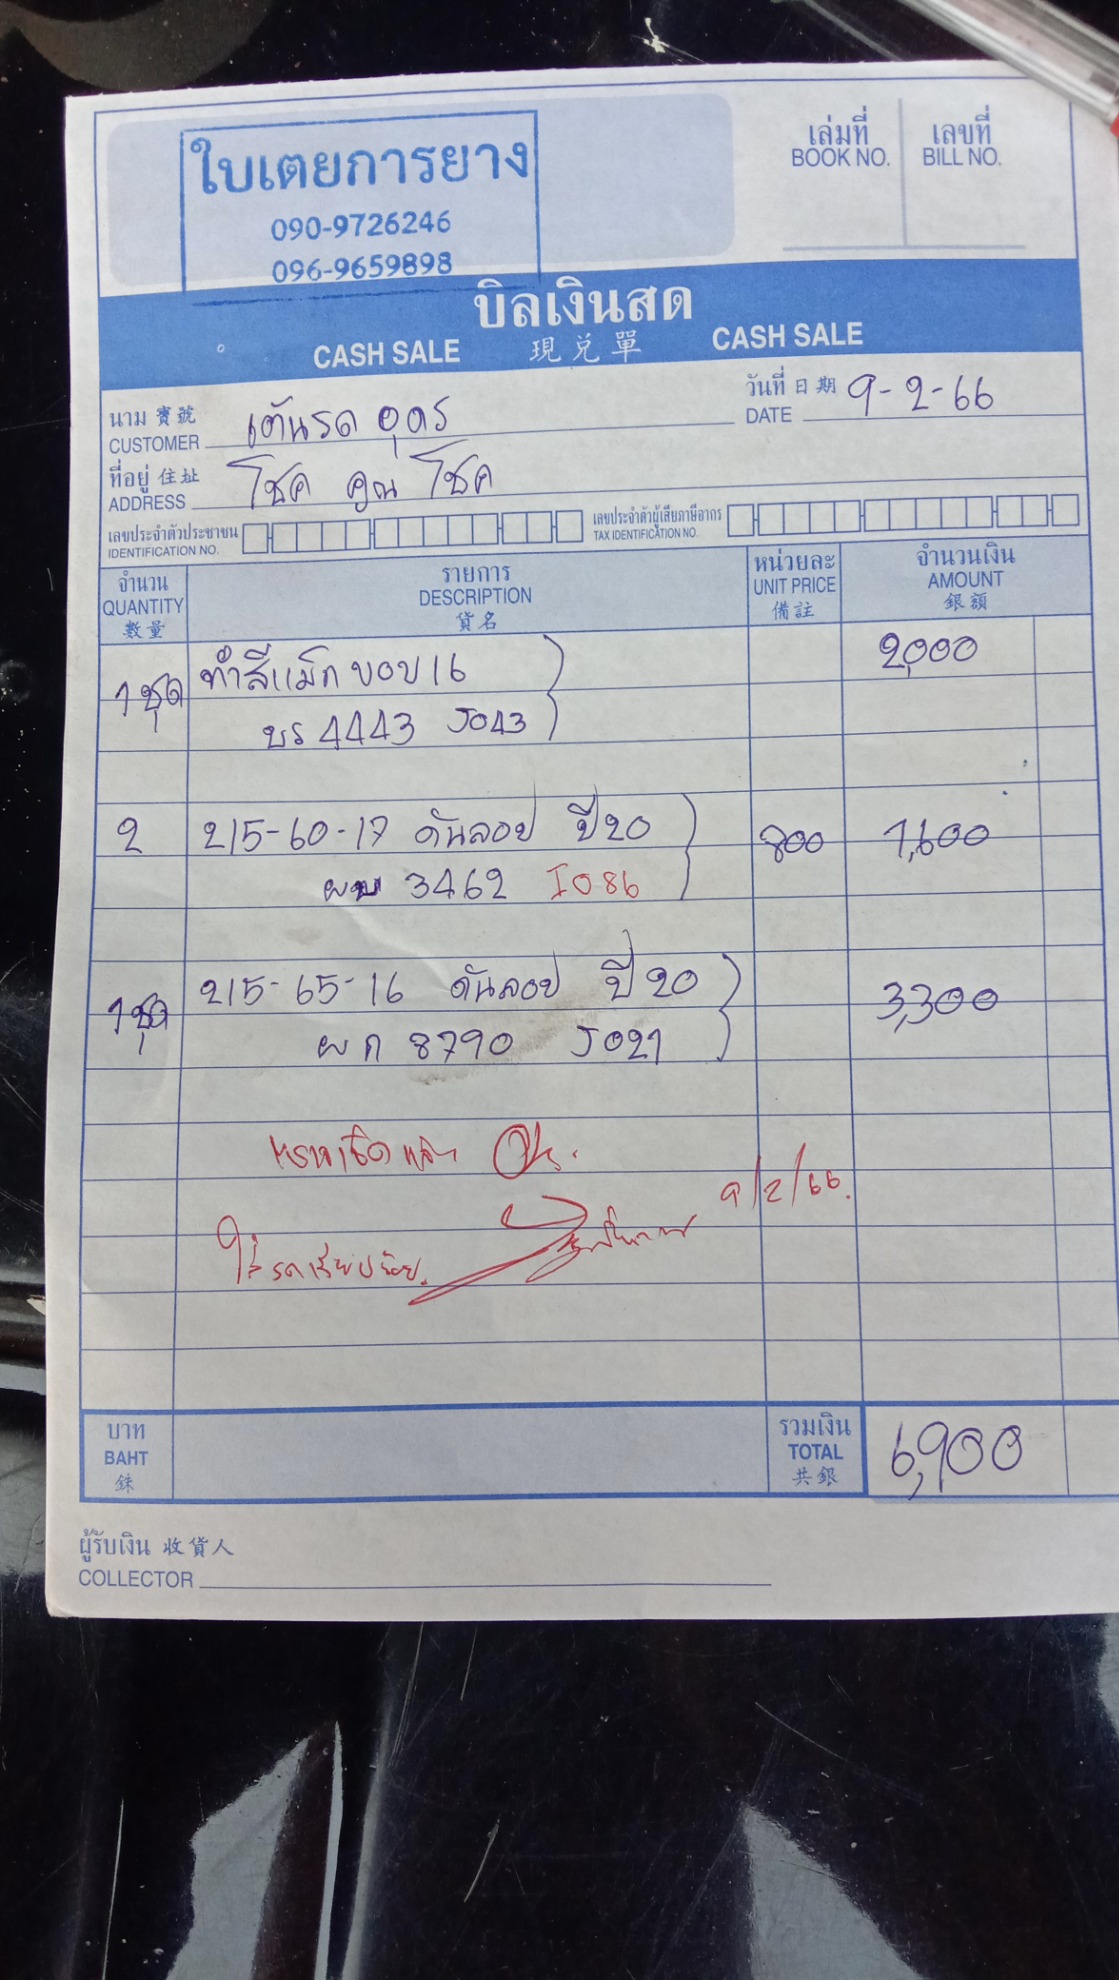 ใบเตยการยาง
090-9726246
096-9659898
เล่มที่ เลขที่
BOOK NO. BILL NO.
บิลเงินสด
CASH SALE 現兌單 CASH SALE
นาม 寶號 วันที่ 日期 9-2-66
CUSTOMER เต้นรถ อุดร DATE
ที่อยู่ 住址
ADDRESS โชค คูณ โชค
เลขประจำตัวประชาชน เลขประจำตัวผู้เสียภาษีอากร
IDENTIFICATION NO. TAX IDENTIFICATION NO.
จำนวน รายการ หน่วยละ จำนวนเงิน
QUANTITY DESCRIPTION UNIT PRICE AMOUNT
數量 貨名 備註 銀額
1 ชุด ทำสีแม็ก ขอบ 16 2,000
บร 4443 J043
2 215-60-17 ดันลอป ปี 20 800 1,600
ผบ 3462 I086
1 ชุด 215-65-16 ดันลอป ปี 20 3,300
ผก 8790 J021
9/2/66.
บาท รวมเงิน
BAHT TOTAL 6,900
銖 共銀
ผู้รับเงิน 收貨人
COLLECTOR